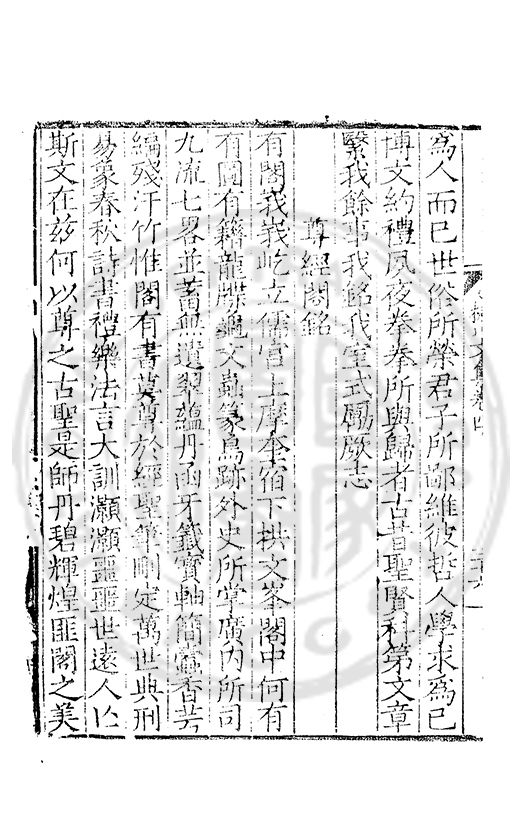 爲人而已世俗所榮君子所鄙維彼哲人學求爲已
博文約禮夙夜拳拳所與歸者古昔聖賢科第文章
繄我餘事我銘我室式勵厥志
尊經閣銘
有閣峩峩屹立儒宮上摩奎宿下拱文峯閣中何有
有圖有籍龍牒龜文蟲篆鳥跡外史所掌廣內所司
九流七畧並蓄無遺翠蘊丹函牙籤寶軸簡蠹香芸
編殘汗竹惟閣有書莫尊於經聖筆刪定萬世典刑
易象春秋詩書禮樂法言大訓灝灝噩噩世遠人亾
斯文在兹何以尊之古聖是師丹碧輝煌匪閣之美